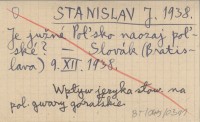 STANISLAV J. 1938.
Je južne Poľsko naozaj poľ-
ské? — Slovák (Bratis-
lava) 9. XII. 1938.
Wpływ języka słow. na
pol. gwary góralskie